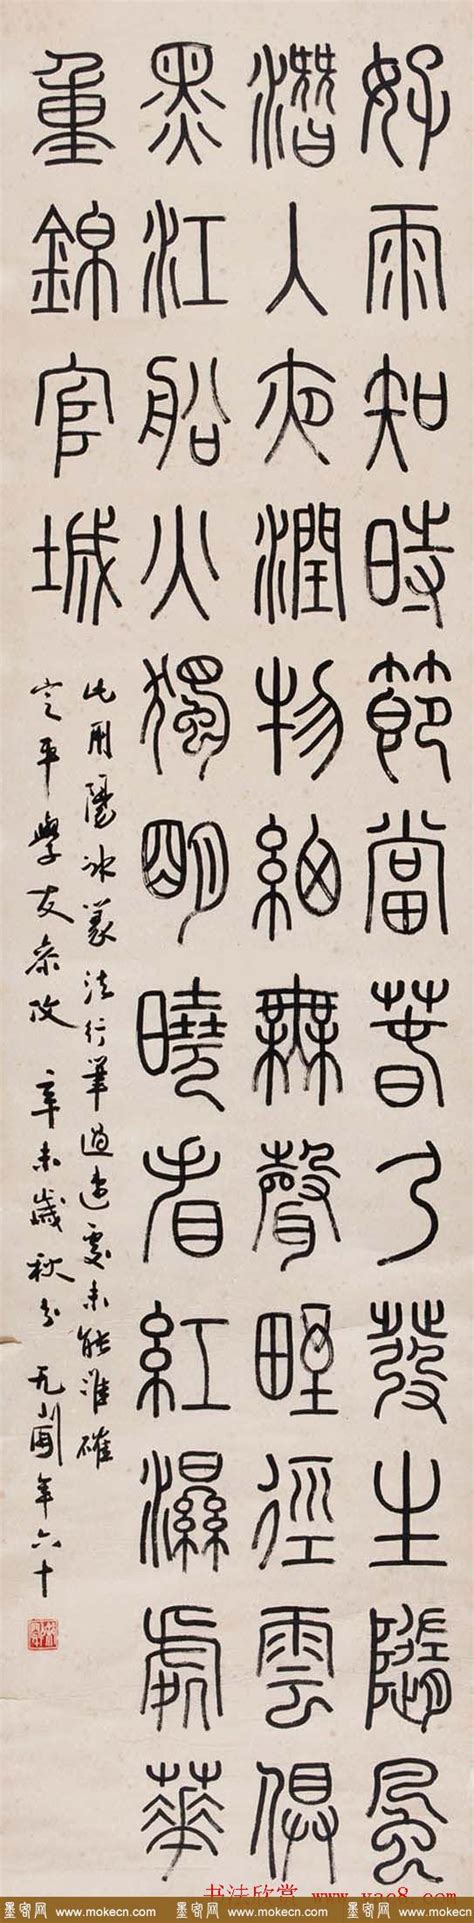 好雨知時節當春乃發生隨風
潛入夜潤物細無聲野徑雲俱
黑江船火獨明曉看紅濕處華
重錦官城
此用陽冰篆法行筆過速處未能准確
平學友 辛未歲秋分 年六十
书法欣赏 www.yac8.com
墨客网 www.mokecn.com 墨客网 www.mokecn.com 墨客网 www.mokecn.com